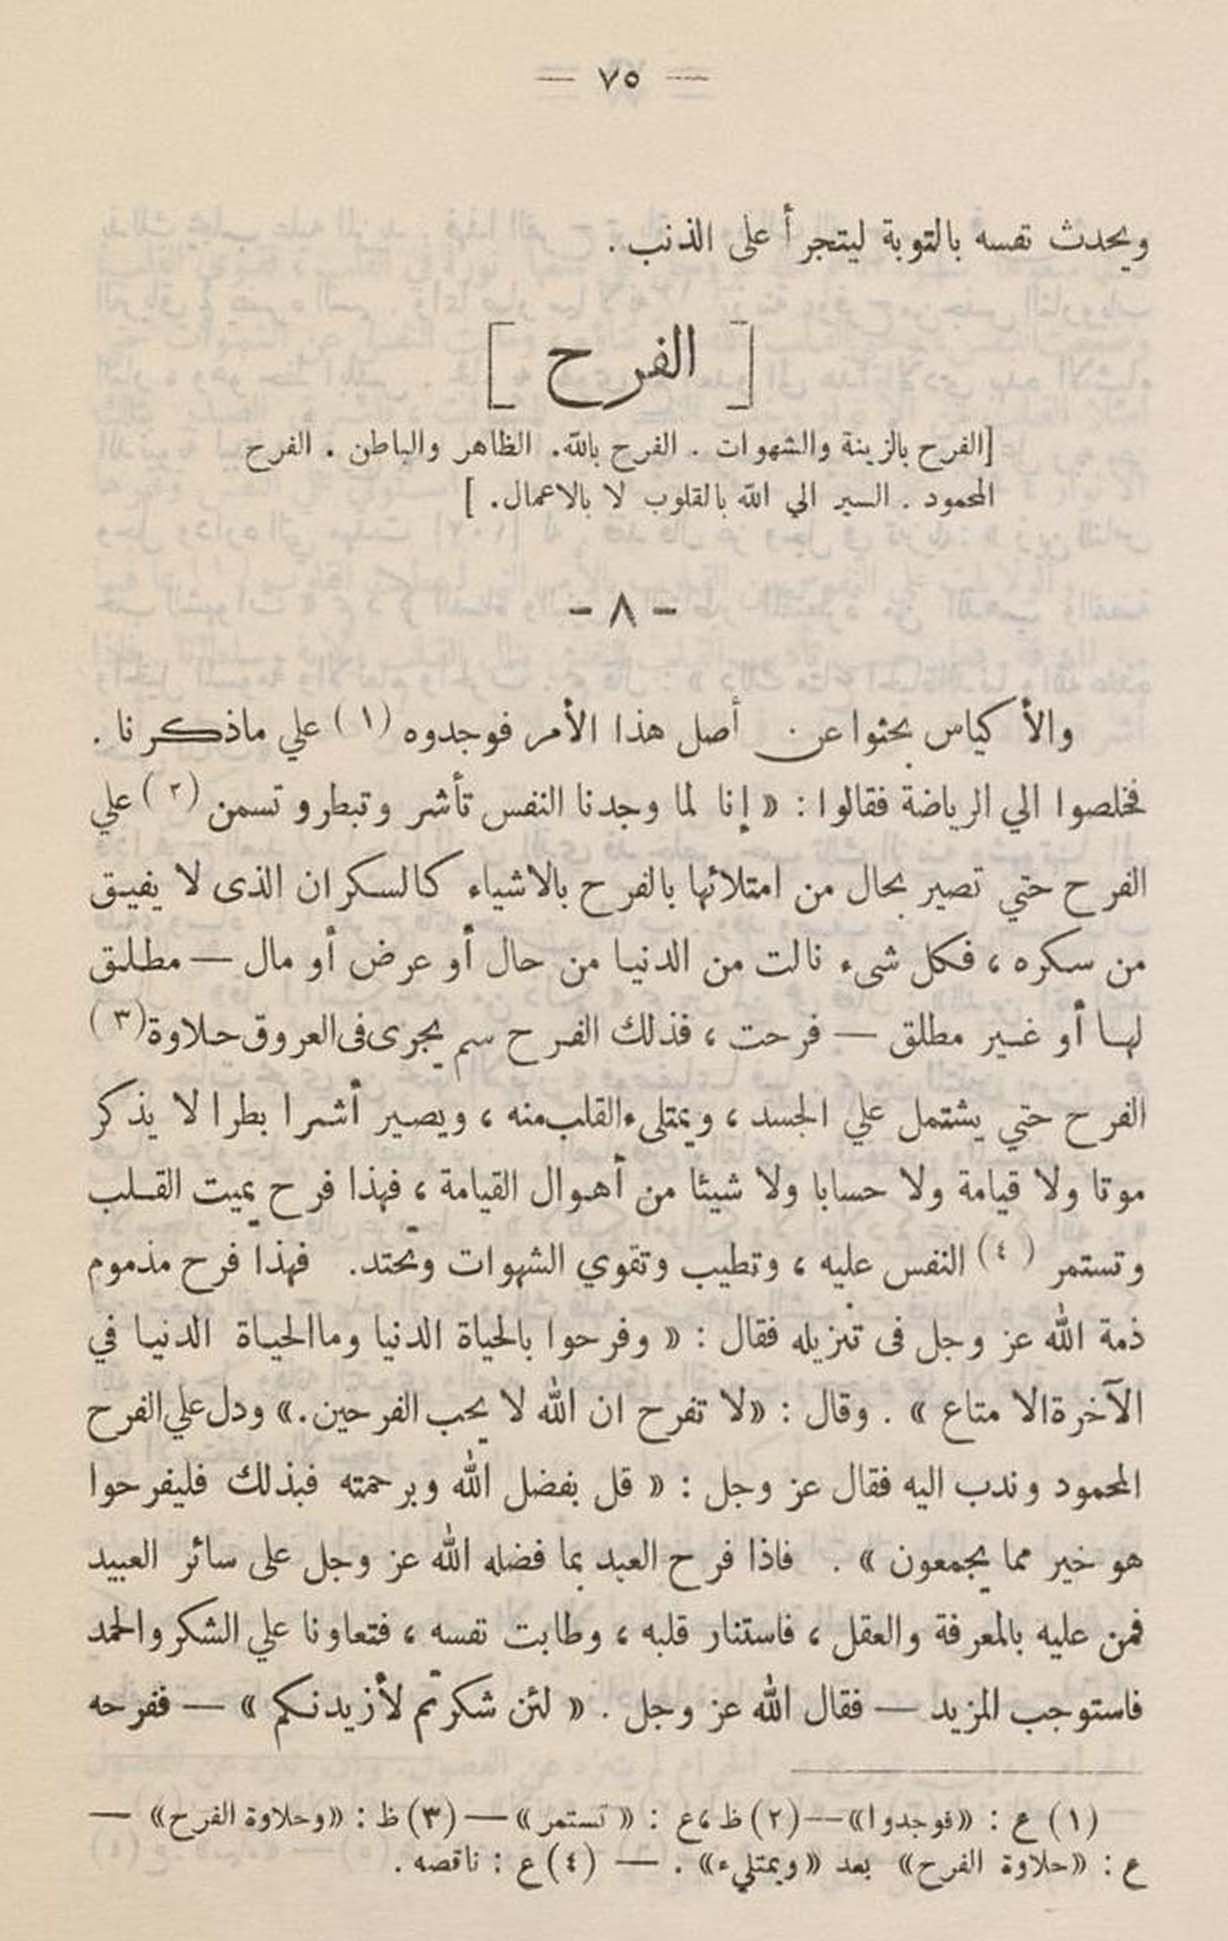 — ٧٥ —
ويحدث نفسه بالتوبة ليتجرأ على الذنب .
[ الفرح ]
[الفرح بالزينة والشهوات . الفرح بالله . الظاهر والباطن . الفرح
المحمود . السير الي الله بالقلوب لا بالاعمال . ]
- ٨ -
والأكياس بحثوا عن أصل هذا الأمر فوجدوه (١) علي ماذكرنا .
فخلصوا الي الرياضة فقالوا : « إنا لما وجدنا النفس تأشر وتبطر وتسمن (٢) علي
الفرح حتي تصير بحال من امتلائها بالفرح بالاشياء كالسكران الذى لا يفيق
من سكره ، فكل شىء نالت من الدنيا من حال أو عرض أو مال — مطلق
لها أو غير مطلق — فرحت ، فذلك الفرح سم يجرى فى العروق حلاوة (٣)
الفرح حتي يشتمل علي الجسد ، ويمتلىء القلب منه ، ويصير أشرا بطرا لا يذكر
موتا ولا قيامة ولا حسابا ولا شيئا من أهوال القيامة ، فهذا فرح يميت القلب
وتستمر (٤) النفس عليه ، وتطيب وتقوي الشهوات وتحتد . فهذا فرح مذموم
ذمة الله عز وجل فى تنزيله فقال : « وفرحوا بالحياة الدنيا وما الحياة الدنيا في
الآخرة الا متاع » . وقال : «لا تفرح ان الله لا يحب الفرحين .» ودل علي الفرح
المحمود وندب اليه فقال عز وجل : « قل بفضل الله وبرحمته فبذلك فليفرحوا
هو خير مما يجمعون » . فاذا فرح العبد بما فضله الله عز وجل على سائر العبيد
فمن عليه بالمعرفة والعقل ، فاستنار قلبه ، وطابت نفسه ، فتعاونا علي الشكر والحمد
فاستوجب المزيد — فقال الله عز وجل . « لئن شكرتم لأزيدنكم » — ففرحه
(١) ع : «فوجدوا» — (٢) ظ ،ع : « تستمر » — (٣) ظ : «وحلاوة الفرح» —
ع : «حلاوة الفرح» بعد «ويمتليء» . — (٤) ع : ناقصه .